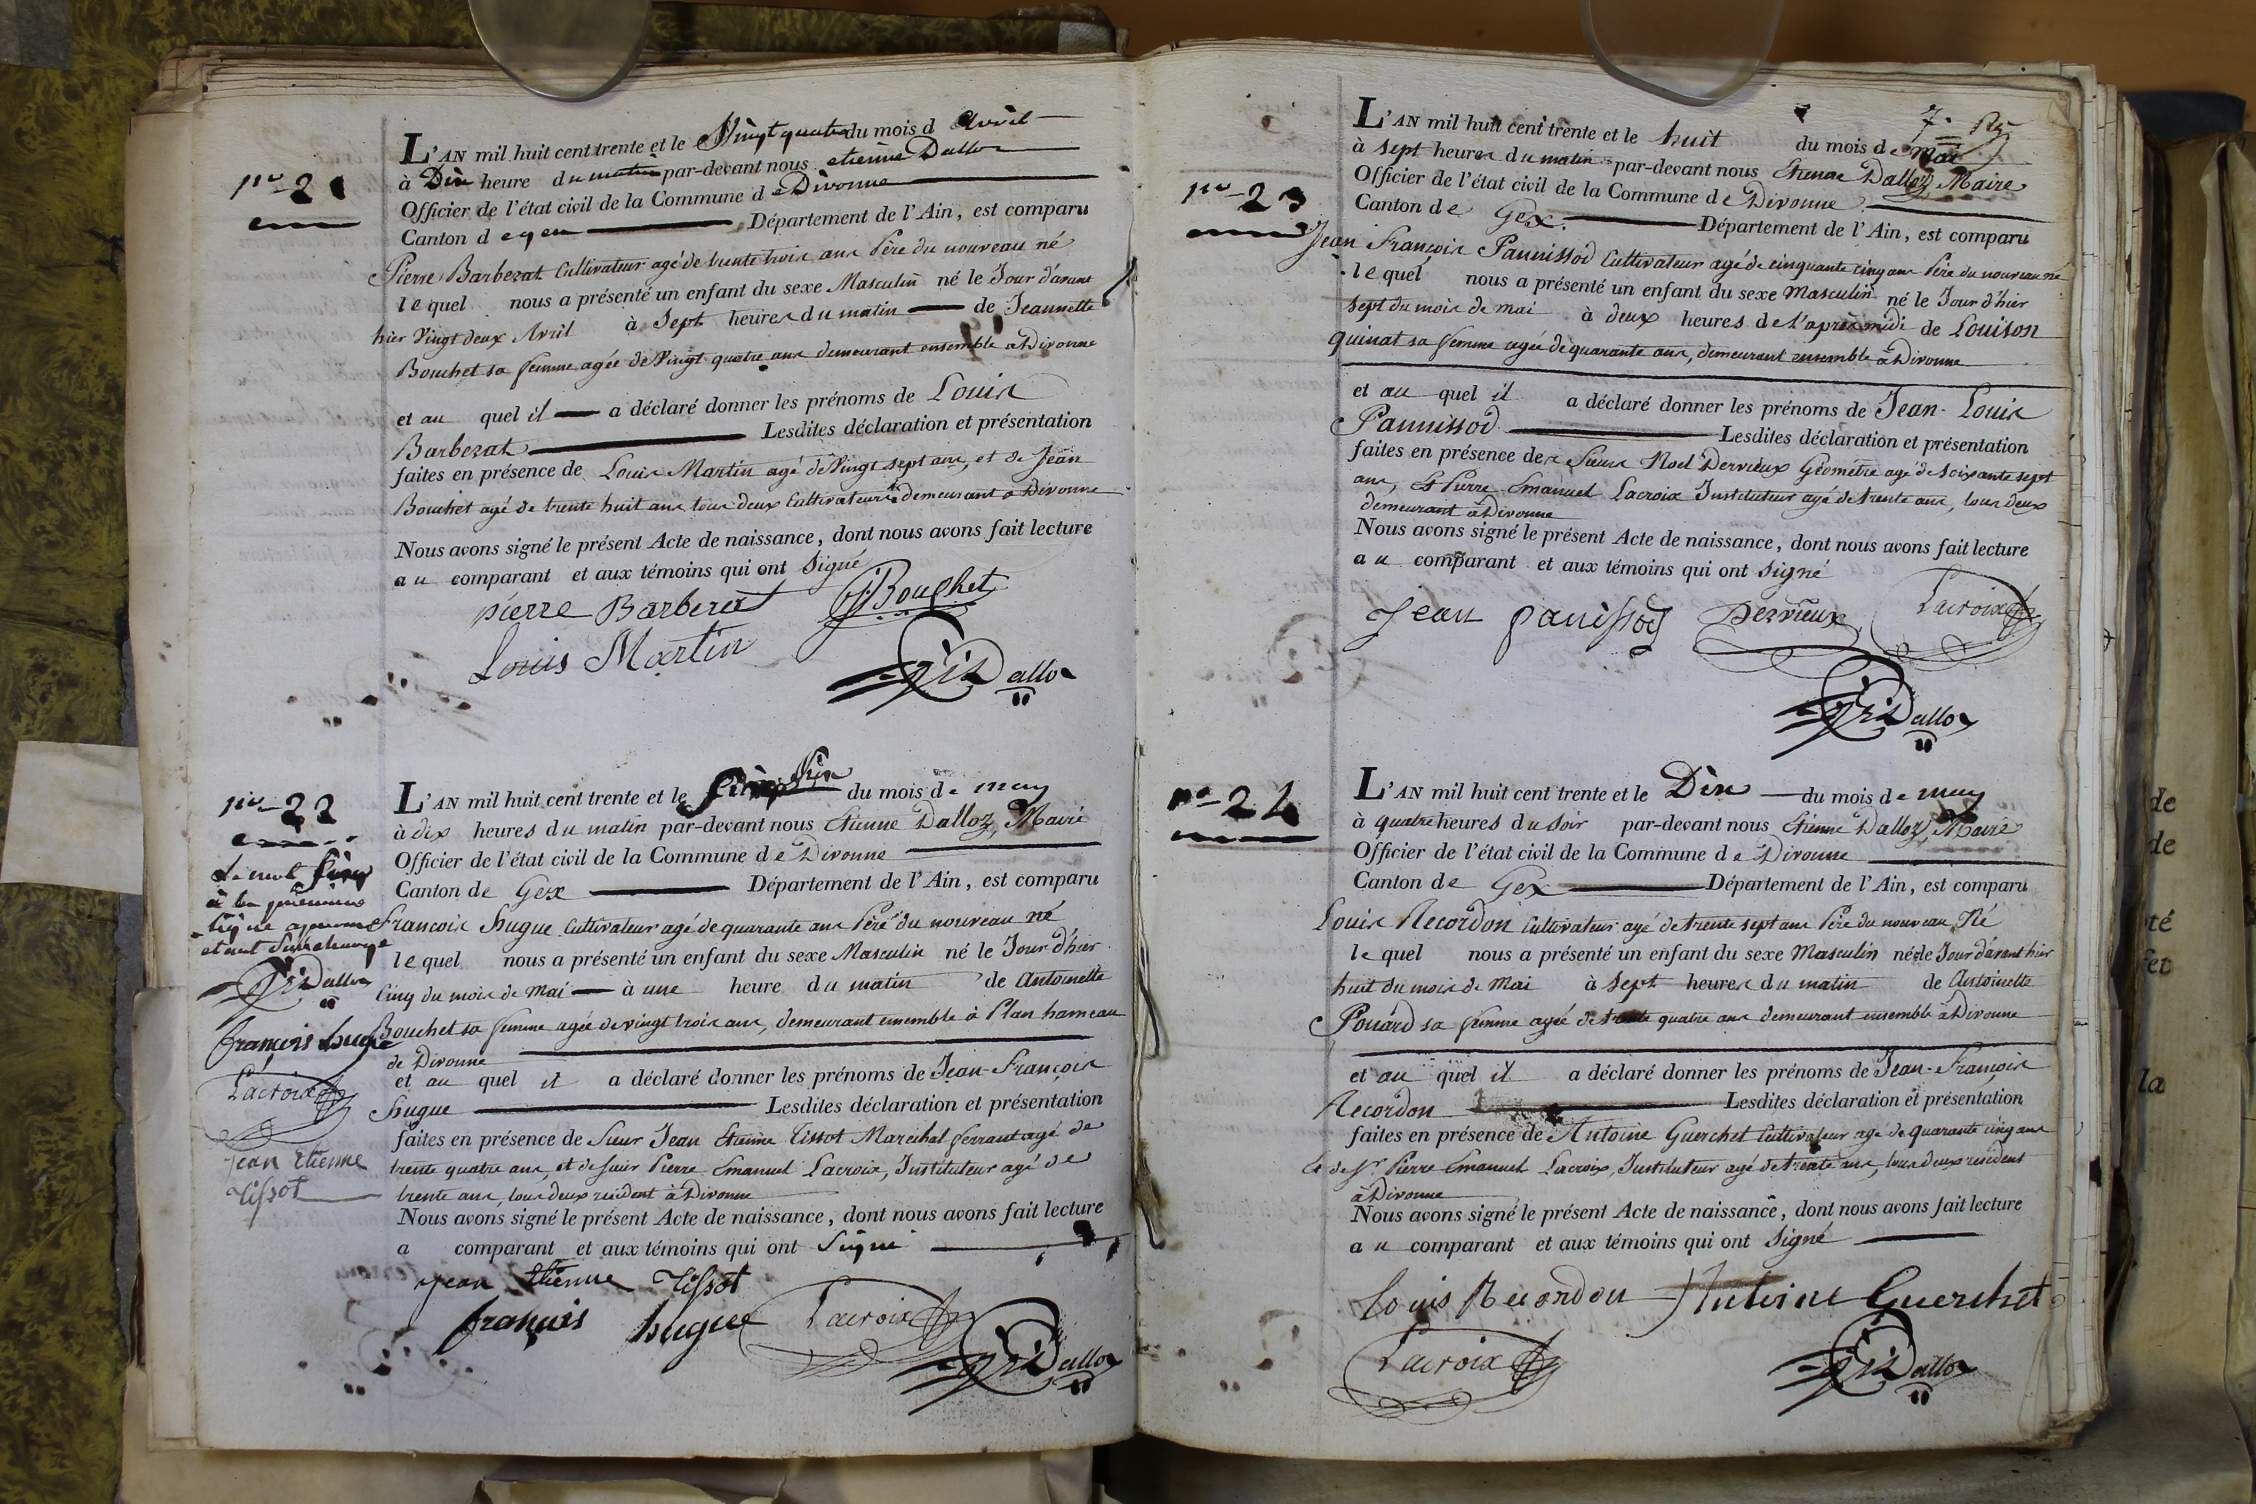 nº 21
L'AN mil huit cent trente et le Vingt quatre du mois d Avril
à Dix heure du matin par-devant nous etienne Dalloz
Officier de l'état civil de la Commune de Divonne
Canton d egex Département de l'Ain, est comparu
Pierre Barbezat Cultivateur agé de trente trois ans Père du nouveau né
lequel nous a présenté un enfant du sexe Masculin né le Jour d'avant
hier Vingt deux Avril à Sept heures du matin de Jeannette
Bouchet sa femme agée de Vingt quatre ans demeurant ensemble à Divonne
et au quel il a déclaré donner les prénoms de Louis
Barbezat Lesdites déclaration et présentation
faites en présence de Louis Martin agé de Vingt sept ans, et de Jean
Bouchet agé de trente huit ans tous deux Cultivateurs demeurant à Divonne
Nous avons signé le présent Acte de naissance, dont nous avons fait lecture
au comparant et aux témoins qui ont Signé
pierre Barberat Bouchet
Louis Martin
Dalloz
nº 22
L'AN mil huit cent trente et le Six du mois de may
à dix heures du matin par-devant nous Etienne Dalloz, Maire
Officier de l'état civil de la Commune de Divonne
Canton de Gex Département de l'Ain, est comparu
François hugue Cultivateur agé de quarante ans Père du nouveau né
lequel nous a présenté un enfant du sexe Masculin né le Jour d'hier
Cinq du mois de Mai à une heure du matin de Antoinette
Bouchet sa femme agée de vingt trois ans, demeurant ensemble à Plan hameau
de Divonne
et au quel il a déclaré donner les prénoms de Jean-François
hugue Lesdites déclaration et présentation
faites en présence de Sieur Jean Etienne Tissot Marechal ferrant agé de
trente quatre ans, et de Sieur Pierre Emanuel Lacroix, Instituteur agé de
trente ans, tous deux résident à Divonne
Nous avons signé le présent Acte de naissance, dont nous avons fait lecture
a comparant et aux témoins qui ont Signé
jean Etienne Tissot
francois hugue Lacroix
Dalloz
Le mot
à la première
ligne
Dalloz
francois hugue
Lacroix
jean Etienne
Tissot
nº 23
L'AN mil huit cent trente et le huit du mois de Mai
à Sept heures du matin par-devant nous Etienne Dalloz, Maire
Officier de l'état civil de la Commune de Divonne
Canton de Gex. Département de l'Ain, est comparu
Jean François Pannissod Cultivateur agé de cinquante cinq ans Père du nouveau né
lequel nous a présenté un enfant du sexe Masculin né le Jour d'hier
Sept du mois de mai à deux heures de l'après midi de Louison
quinat sa femme agée de quarante ans, demeurant ensemble à Divonne
et au quel il a déclaré donner les prénoms de Jean-Louis
Pannissod Lesdites déclaration et présentation
faites en présence de Sieur Noel Dervieux Géomètre agé de soixante sept
ans, Et Pierre Emanuel Lacroix Instituteur agé de trente ans, tous deux
demeurant à Divonne
Nous avons signé le présent Acte de naissance, dont nous avons fait lecture
au comparant et aux témoins qui ont Signé
Jean panissod Dervieux Lacroix
Dalloz
nº 24
L'AN mil huit cent trente et le Dix du mois de may
à quatre heures du soir par-devant nous Etienne Dalloz, Maire
Officier de l'état civil de la Commune de Divonne
Canton de Gex Département de l'Ain, est comparu
Louis Recordon Cultivateur agé de trente sept ans Père du nouveau Né
lequel nous a présenté un enfant du sexe Masculin né le Jour d'avant hier
huit du mois de Mai à Sept heures du matin de Antoinette
Pouard sa femme agée de trente quatre ans demeurant ensemble à Divonne
et au quel il a déclaré donner les prénoms de Jean-François
Recordon Lesdites déclaration et présentation
faites en présence de Antoine Guerchet Cultivateur agé de quarante cinq ans
Et de Sr Pierre Emanuel Lacroix, Instituteur agé de trente ans, tous deux résident
à Divonne
Nous avons signé le présent Acte de naissance, dont nous avons fait lecture
au comparant et aux témoins qui ont Signé
louis Recordon Antoine Guerchet
Lacroix
Dalloz